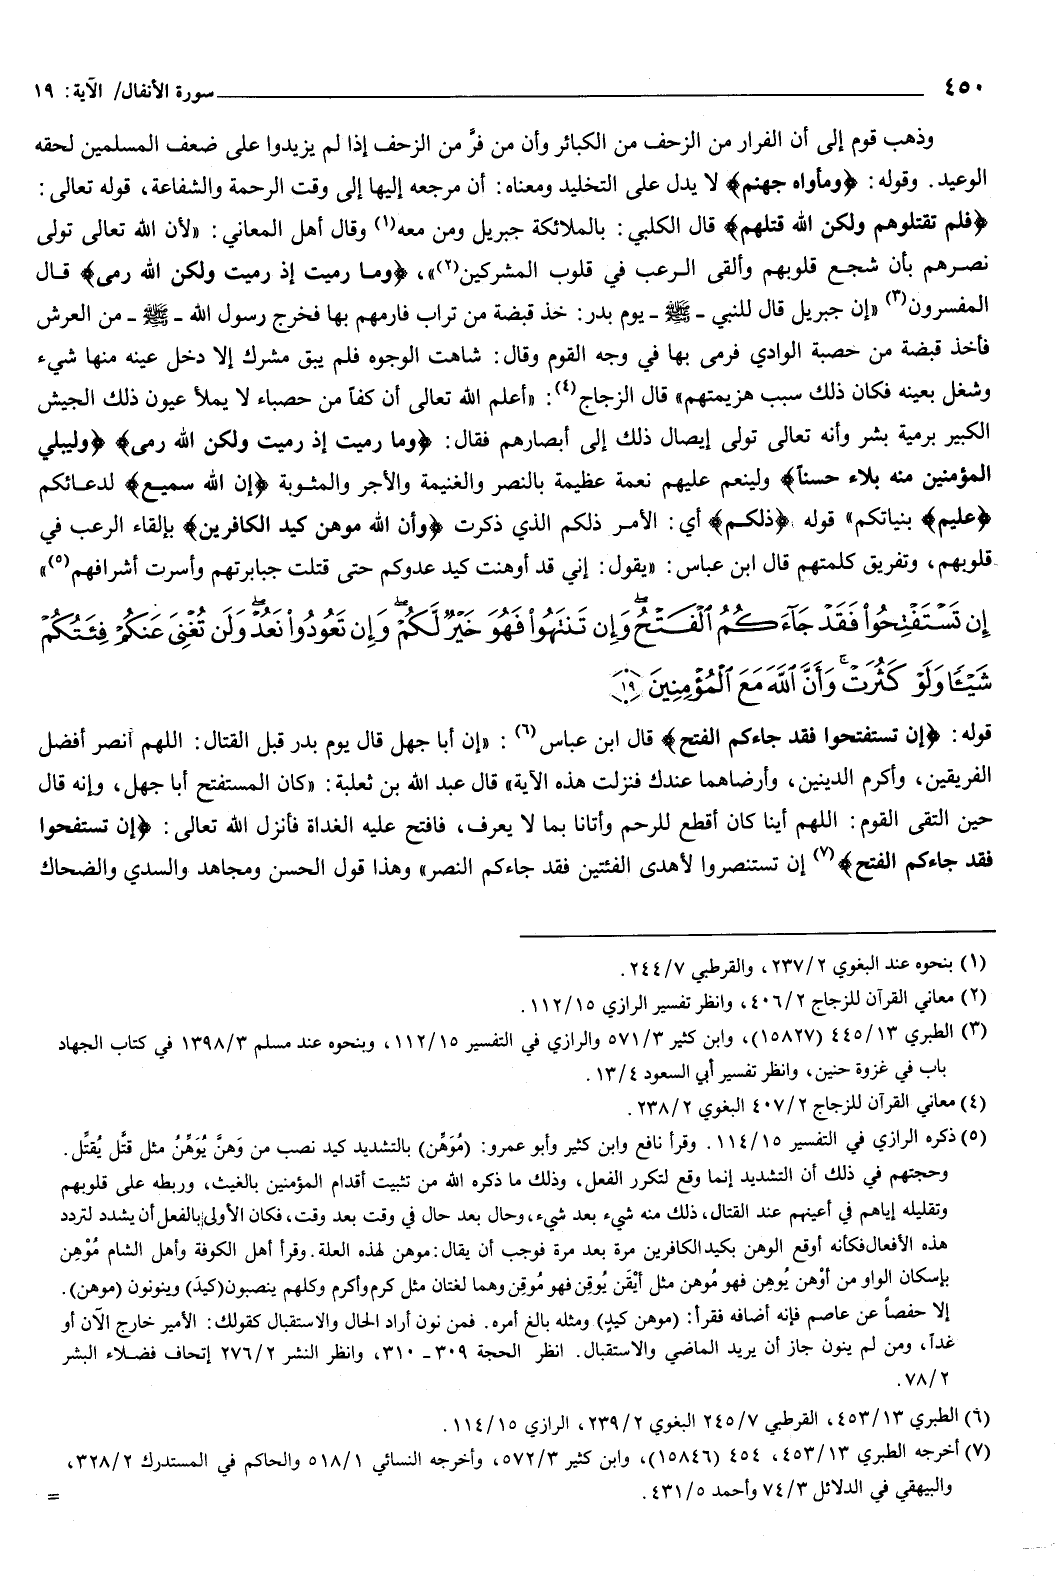 ٤٥٠ سورة الأنفال/ الآية: ١٩
وذهب قوم إلى أن الفرار من الزحف من الكبائر وأن من فرَّ من الزحف إذا لم يزيدوا على ضعف المسلمين لحقه
الوعيد. وقوله: ﴿ومأواه جهنم﴾ لا يدل على التخليد ومعناه: أن مرجعه إليها إلى وقت الرحمة والشفاعة، قوله تعالى:
﴿فلم تقتلوهم ولكن الله قتلهم﴾ قال الكلبي: بالملائكة جبريل ومن معه(١) وقال أهل المعاني: «لأن الله تعالى تولى
نصرهم بأن شجع قلوبهم وألقى الرعب في قلوب المشركين(٢)»، ﴿وما رميت إذ رميت ولكن الله رمى﴾ قال
المفسرون(٣) «إن جبريل قال للنبي ـ ﷺ ـ يوم بدر: خذ قبضة من تراب فارمهم بها فخرج رسول الله ـ ﷺ ـ من العرش
فأخذ قبضة من حصبة الوادي فرمى بها في وجه القوم وقال: شاهت الوجوه فلم يبق مشرك إلا دخل عينه منها شيء
وشغل بعينه فكان ذلك سبب هزيمتهم» قال الزجاج(٤): «أعلم الله تعالى أن كفاً من حصباء لا يملأ عيون ذلك الجيش
الكبير برمية بشر وأنه تعالى تولى إيصال ذلك إلى أبصارهم فقال: ﴿وما رميت إذ رميت ولكن الله رمى﴾ ﴿وليبلي
المؤمنين منه بلاء حسناً﴾ ولينعم عليهم نعمة عظيمة بالنصر والغنيمة والأجر والمثوبة ﴿إن الله سميع﴾ لدعائكم
﴿عليم﴾ بنياتكم» قوله ﴿ذلكم﴾ أي: الأمر ذلكم الذي ذكرت ﴿وأن الله موهن كيد الكافرين﴾ بإلقاء الرعب في
قلوبهم، وتفريق كلمتهم قال ابن عباس: «يقول: إني قد أوهنت كيد عدوكم حتى قتلت جبابرتهم وأسرت أشرافهم(٥)»
إِن تَسْتَفْتِحُوا۟ فَقَدْ جَآءَكُمُ ٱلْفَتْحُ ۖ وَإِن تَنتَهُوا۟ فَهُوَ خَيْرٌ لَّكُمْ ۖ وَإِن تَعُودُوا۟ نَعُدْ ۖ وَلَن تُغْنِىَ عَنكُمْ فِئَتُكُمْ
شَيْـًٔا وَلَوْ كَثُرَتْ ۚ وَأَنَّ ٱللَّهَ مَعَ ٱلْمُؤْمِنِينَ ١٩
قوله: ﴿إن تستفتحوا فقد جاءكم الفتح﴾ قال ابن عباس(٦): «إن أبا جهل قال يوم بدر قبل القتال: اللهم أنصر أفضل
الفريقين، وأكرم الدينين، وأرضاهما عندك فنزلت هذه الآية» قال عبد الله بن ثعلبة: «كان المستفتح أبا جهل، وإنه قال
حين التقى القوم: اللهم أينا كان أقطع للرحم وأتانا بما لا يعرف، فافتح عليه الغداة فأنزل الله تعالى: ﴿إن تستفحوا
فقد جاءكم الفتح﴾(٧) إن تستنصروا لأهدى الفئتين فقد جاءكم النصر» وهذا قول الحسن ومجاهد والسدي والضحاك
(١) بنحوه عند البغوي ٢/٢٣٧، والقرطبي ٧/٢٤٤.
(٢) معاني القرآن للزجاج ٢/٤٠٦، وانظر تفسير الرازي ١٥/١١٢.
(٣) الطبري ١٣/٤٤٥ (١٥٨٢٧)، وابن كثير ٣/٥٧١ والرازي في التفسير ١٥/١١٢، وبنحوه عند مسلم ٣/١٣٩٨ في كتاب الجهاد
باب في غزوة حنين، وانظر تفسير أبي السعود ٤/١٣.
(٤) معاني القرآن للزجاج ٢/٤٠٧ البغوي ٢/٢٣٨.
(٥) ذكره الرازي في التفسير ١٥/١١٤. وقرأ نافع وابن كثير وأبو عمرو: (مُوَهِّن) بالتشديد كيد نصب من وَهنَّ يُوَهِّنُ مثل قتَّل يُقتِّل.
وحجتهم في ذلك أن التشديد إنما وقع لتكرر الفعل، وذلك ما ذكره الله من تثبيت أقدام المؤمنين بالغيث، وربطه على قلوبهم
وتقليله إياهم في أعينهم عند القتال، ذلك منه شيء بعد شيء، وحال بعد حال في وقت بعد وقت، فكان الأولى بالفعل أن يشدد لتردد
هذه الأفعال فكأنه أوقع الوهن بكيد الكافرين مرة بعد مرة فوجب أن يقال: موهن لهذه العلة. وقرأ أهل الكوفة وأهل الشام مُوْهِن
بإسكان الواو من أوْهن يُوهِن فهو مُوهن مثل أيْقَن يُوقِن فهو مُوقِن وهما لغتان مثل كرم وأكرم وكلهم ينصبون (كيدَ) وينونون (موهن).
إلا حفصاً عن عاصم فإنه أضافه فقرأ: (موهن كيدِ) ومثله بالغ أمره. فمن نون أراد الحال والاستقبال كقولك: الأمير خارج الآن أو
غداً، ومن لم ينون جاز أن يريد الماضي والاستقبال. انظر الحجة ٣٠٩ ـ ٣١٠، وانظر النشر ٢/٢٧٦ إتحاف فضلاء البشر
٢/٧٨.
(٦) الطبري ١٣/٤٥٣، القرطبي ٧/٢٤٥ البغوي ٢/٢٣٩، الرازي ١٥/١١٤.
(٧) أخرجه الطبري ١٣/٤٥٣، ٤٥٤ (١٥٨٤٦)، وابن كثير ٣/٥٧٢، وأخرجه النسائي ١/٥١٨ والحاكم في المستدرك ٢/٣٢٨،
والبيهقي في الدلائل ٣/٧٤ وأحمد ٥/٤٣١. =